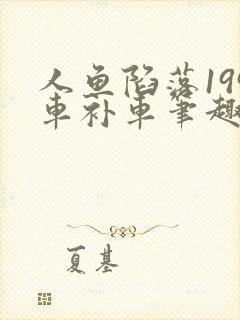 人鱼陷落199
车补车笔趣
夏基